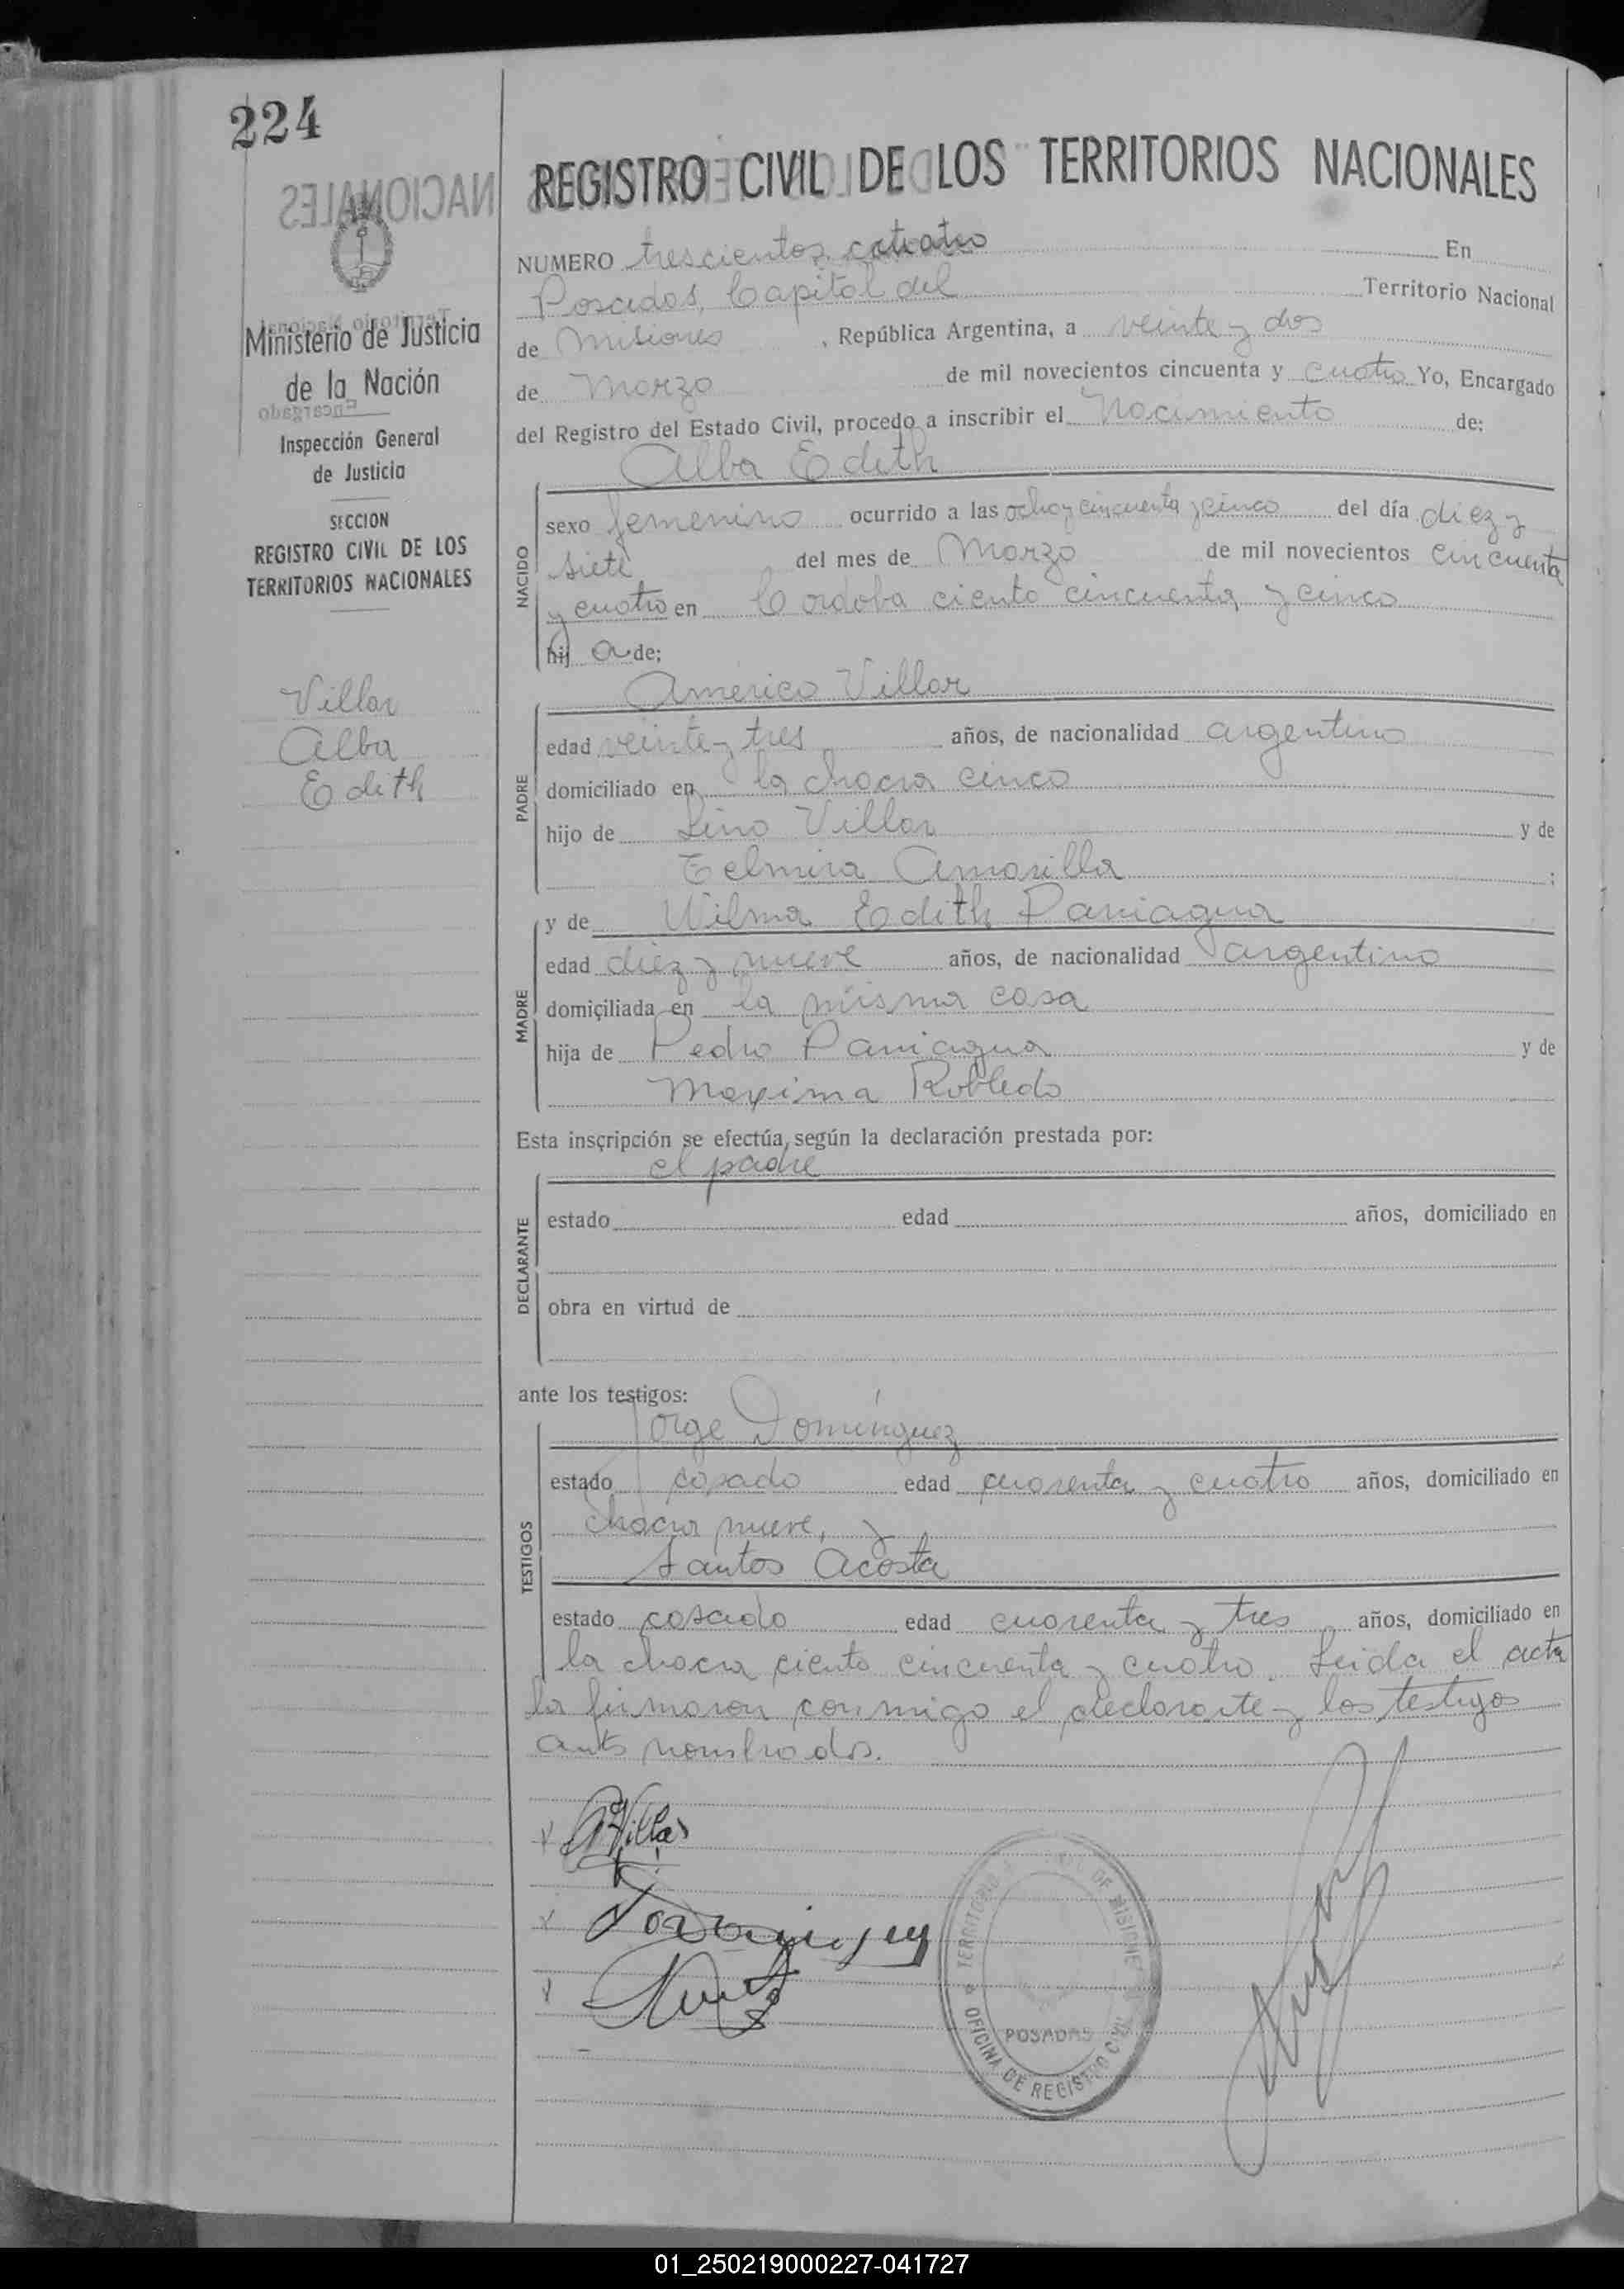 224
REGISTRO CIVIL DE LOS TERRITORIOS NACIONALES
NUMERO trescientos cuatro En
Posadas, Capital del Territorio Nacional
de Misiones, República Argentina, a veinte y dos
de Marzo de mil novecientos cincuenta y cuatro Yo, Encargado
del Registro del Estado Civil, procedo a inscribir el Nacimiento de:
Ministerio de Justicia
de la Nación
Inspección General
de Justicia
SECCION
REGISTRO CIVIL DE LOS
TERRITORIOS NACIONALES
Villar
Alba
Edith
NACIDO
Alba Edith
sexo femenino ocurrido a las ocho y cincuenta y cinco del día diez y
siete del mes de Marzo de mil novecientos cincuenta
y cuatro en Cordoba ciento cincuenta y cinco
hij a de:
PADRE
Americo Villar
edad veinte y tres años, de nacionalidad argentino
domiciliado en la chacra cinco
hijo de Lino Villar y de
Telmira Amarilla ;
MADRE
y de Wilma Edith Paniagua
edad diez y nueve años, de nacionalidad argentino
domiciliada en la misma casa
hija de Pedro Paniagua y de
Maxima Robledo
Esta inscripción se efectúa según la declaración prestada por:
DECLARANTE
el padre
estado edad años, domiciliado en
obra en virtud de
ante los testigos:
TESTIGOS
Jorge Domínguez
estado casado edad cuarenta y cuatro años, domiciliado en
chacra nueve, y
Santos Acosta
estado casado edad cuarenta y tres años, domiciliado en
la chacra ciento cincuenta y cuatro. Leida el acta
la firmaron conmigo el declarante y los testigos
ants nombrados.
A Villar
Dominguez
TERRITORIO DE MISIONES
POSADAS
OFICINA DE REGISTRO CIVIL
01_250219000227-041727